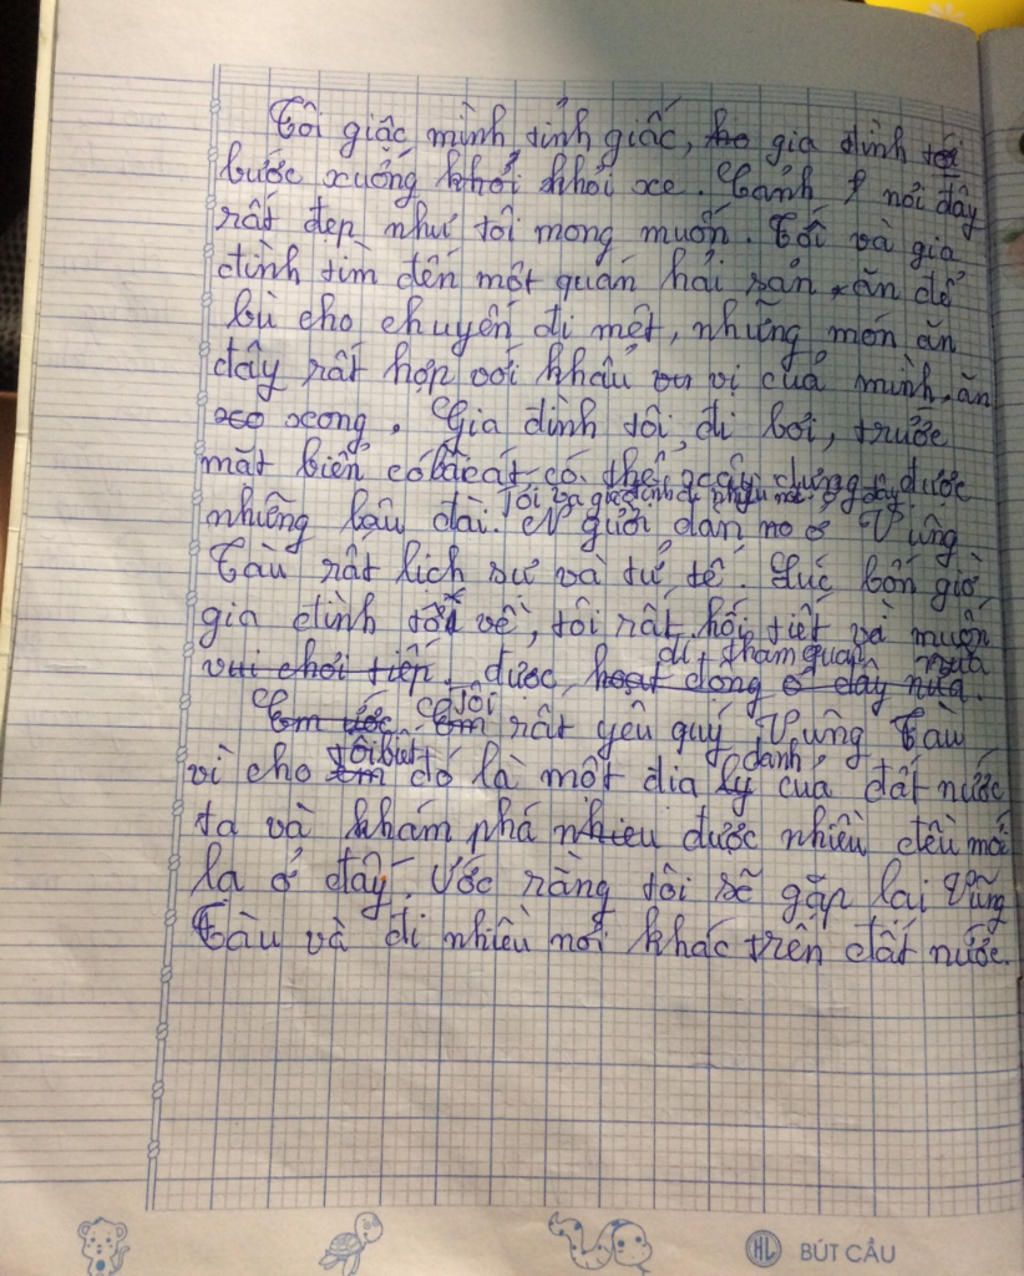 Tôi giậc mình tỉnh giấc, gia đình tôi
bước xuống khỏi xe. Cảnh ở nơi đây
rất đẹp như tôi mong muốn. Tối và gia
đình tìm đến một quán hải sản ăn để
bù cho chuyến đi mệt, những món ăn
đây rất hợp với khẩu vị của mình, ăn
xong. Gia đình tôi đi bơi, trước
mặt biển có bãi cát có thể xây dựng được
Tôi và gia đình đi
những lâu đài. Người dân nơ ở Vũng
Tàu rất lịch sự và tử tế. Lúc bốn giờ
gia đình tôi về, tôi rất hối tiết và muốn
đi tham quan nữa
vui chơi tiếp được hoạt động ở đây nữa.
Tôi
Em ước Em rất yêu quý Vũng Tàu
tôi biết danh
vì cho em đó là một địa lý của đất nước
ta và khám phá nhieu được nhiều đều mới
lạ ở đây. Ước rằng tôi sẽ gặp lại Vũng
Tàu và đi nhiều nơi khác trên đất nước.
HL BÚT CẦU